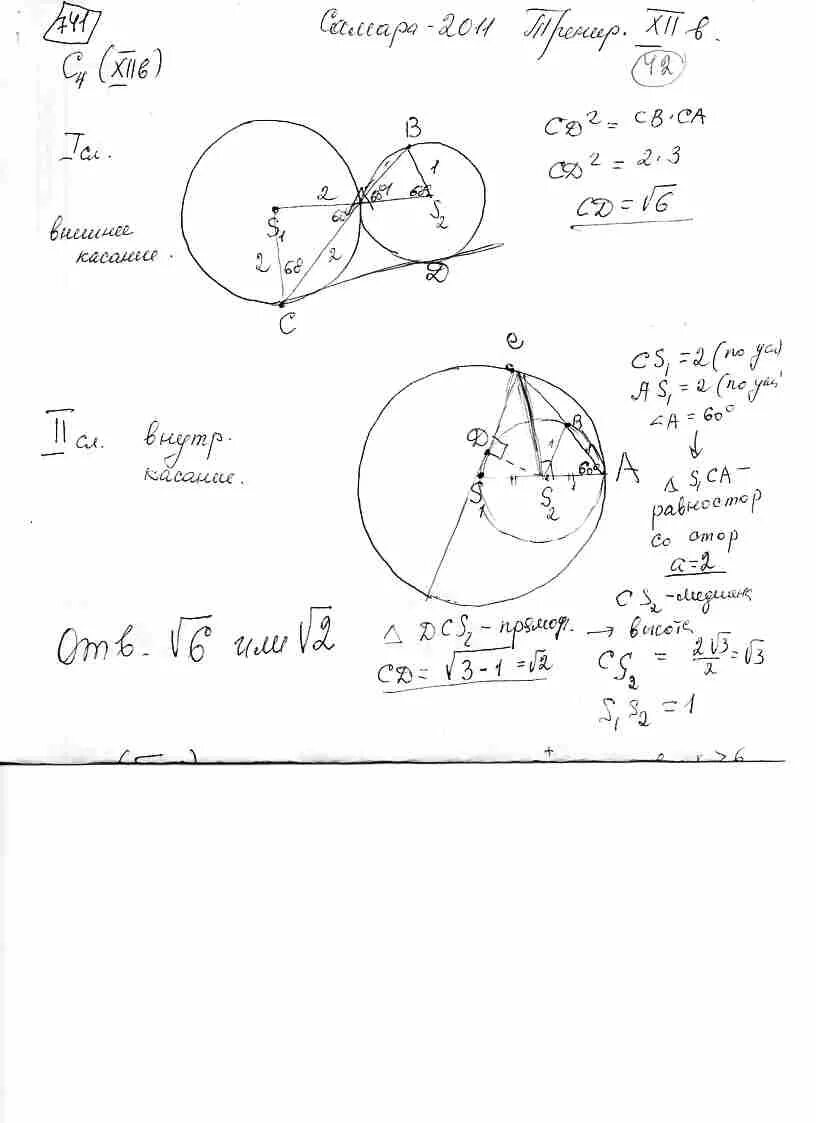 741
Самара-2011 Тренир. XII в.
42
C4 (XII в)
I сл.
внешнее
касание.
B
1
2
60°
1
60°
S1
S2
2
60°
2
D
C
CD² = CB·CA
CD² = 2·3
CD = √6
II сл. внутр.
касание.
C
D
B
1
60°
A
S1
S2
CS1 = 2 (по усл)
AS1 = 2 (по усл)
∠A = 60°
↓
△ S1CA –
равностор
со стор
a = 2
CS2 – медиана
→ высота
CS2 = 2√3/2 = √3
S1S2 = 1
△ DCS2 – прямоуг.
CD = √3-1 = √2
Отв. √6 или √2